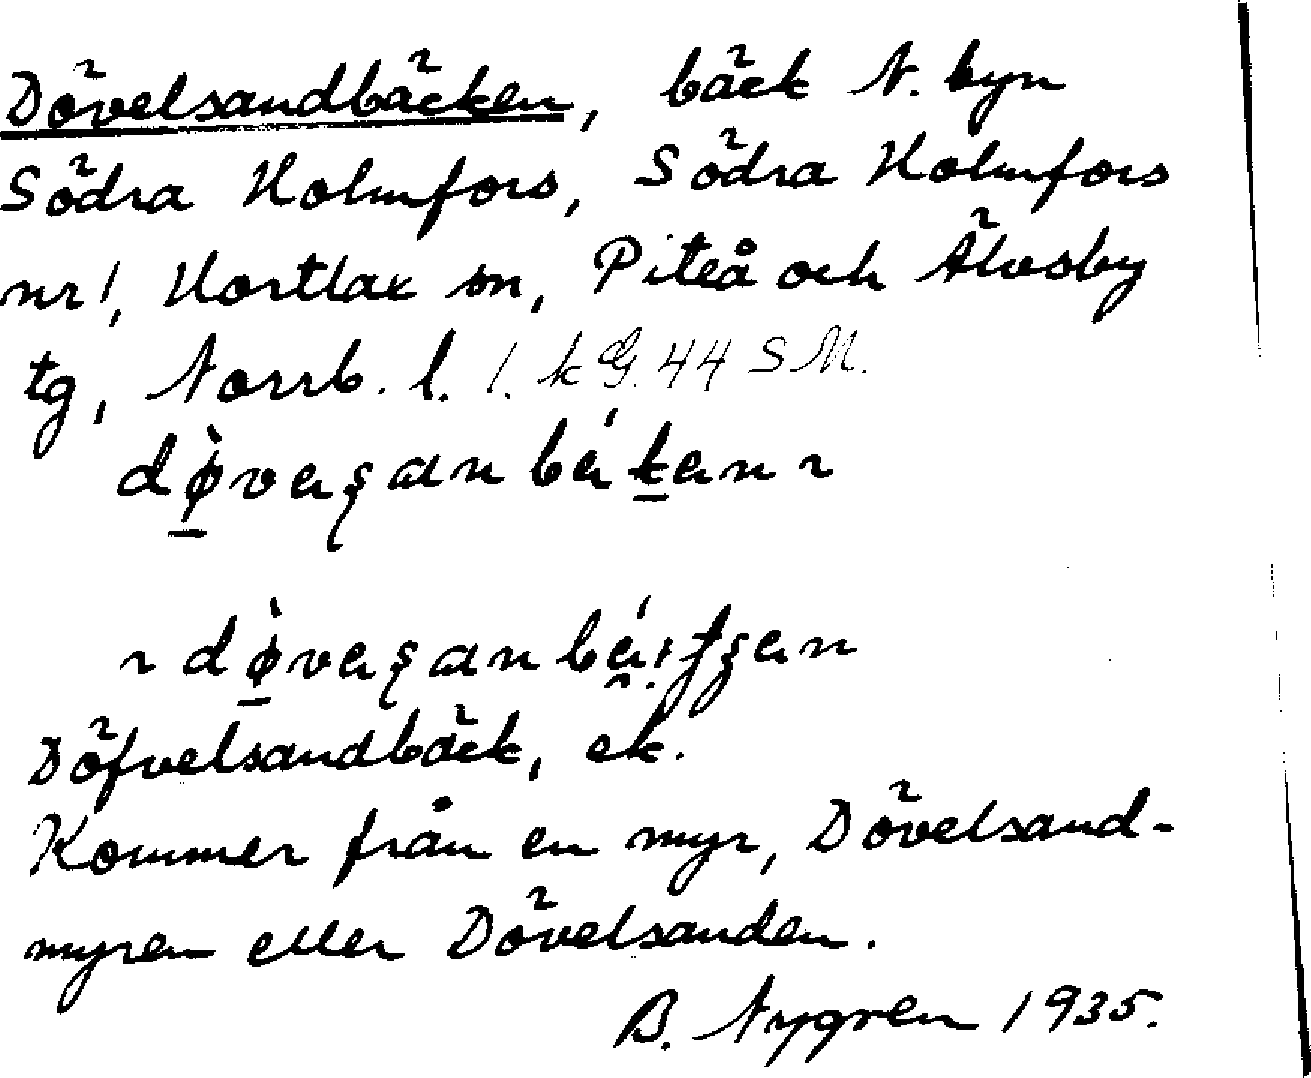 Dövelsandbäcken, bäck N. byn
Södra Holmfors, Södra Holmfors
nr 1, Hortlax sn, Piteå och Älvsby
tg, Norrb. l. 1. k G. 44 S M.
Döfvelsandbäck, ek.
Kommer från en myr, Dövelsand-
myren eller Dövelsanden.
B. Nygren 1935.